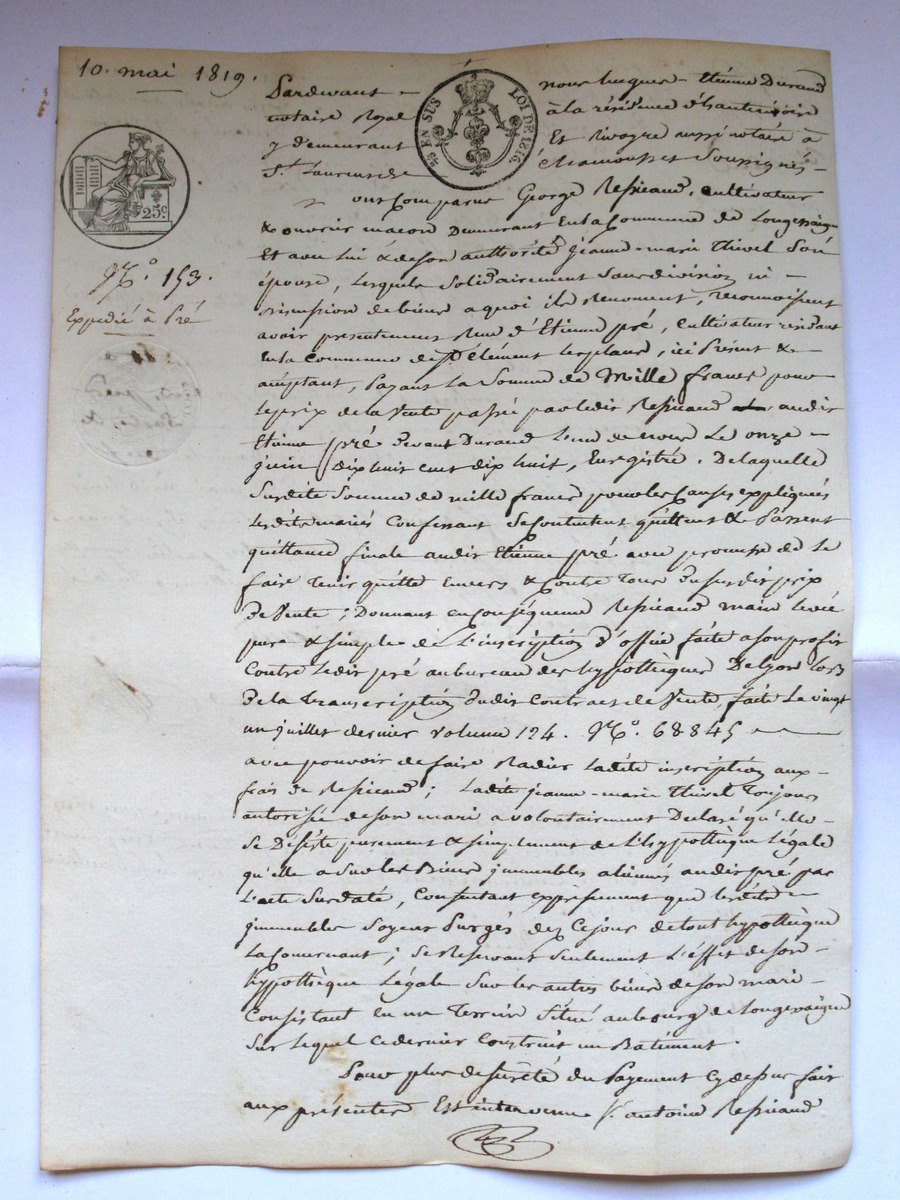 10. mai 1819.
Pardevant nous hugues-Etienne Durand
notaire Royal à la résidence d'hauterivoire
y demeurant Et Rivoyre aussi notaire à
St Laurent de Chamousset Soussignés
25 EN SUS LOI DE 1816.
25c
No. 153.
Expedié à Pré
ont Comparus George Respicaud, Cultivateur
& ouvrier macon Demeurant En la Commune de Longessaigne
Et avec lui & de Son authorité Jeanne-marie Thivel Son
épouse, Lesquels Solidairement Sans division ni
discussion de biens a quoi ils Renoncent, reconnoissent
avoir présentement Reçu d'Etienne pré, Cultivateur résidant
En la Commune de St Clément les places, ici Présent &
acceptant, Payant La Somme de Mille francs pour
Le prix de la Vente passée par ledit Respicaud audit
Etienne pré devant Durand L'un de nous Le onze
juin dix huit cent dix huit, Enregistré. De laquelle
Surdite Somme de mille francs pour les Causes expliquées
Lesdits mariés Confessant Se Contentent quittent & Passent
quittance finale audit Etienne pré avec promesse de Le
faire tenir quitte Envers & Contre Tous du susdit prix
De Vente; Donnant en Conséquence Respicaud main levée
pure & simple de L'inscription d'office faite a son profit
Contre Ledit pré au bureau des hypothèques De Lyon lors
De la Transcription dudit Contract de Vente, faite Le vingt
un juillet dernier volume 124. No. 68845
avec pouvoir de faire Radier Ladite inscription aux
frais de Respicaud; Ladite jeanne-marie Thivel Toujours
autorisée de Son mari a volontairement Déclaré qu'elle
Se Désiste purement & simplement de L'hypothèque Légale
qu'elle a Sur les Biens immeubles aliénés audit pré par
L'acte Surdaté, Consentant expressément que lesdits
immeubles Soyent Purgés dez Ce jour de tout hypothèque
La Concernant; Se Reservant Seulement L'effet de Son
hypothèque Légale Sur les autres biens de Son mari
Consistant En un Terrein Situé au bourg de Longessaigne
Sur Lequel Ce dernier Construit un Batiment.
Pour plus de Sureté du Payement Cy dessus fait
aux présentes Est intervenu Sr. antoine Respicaud